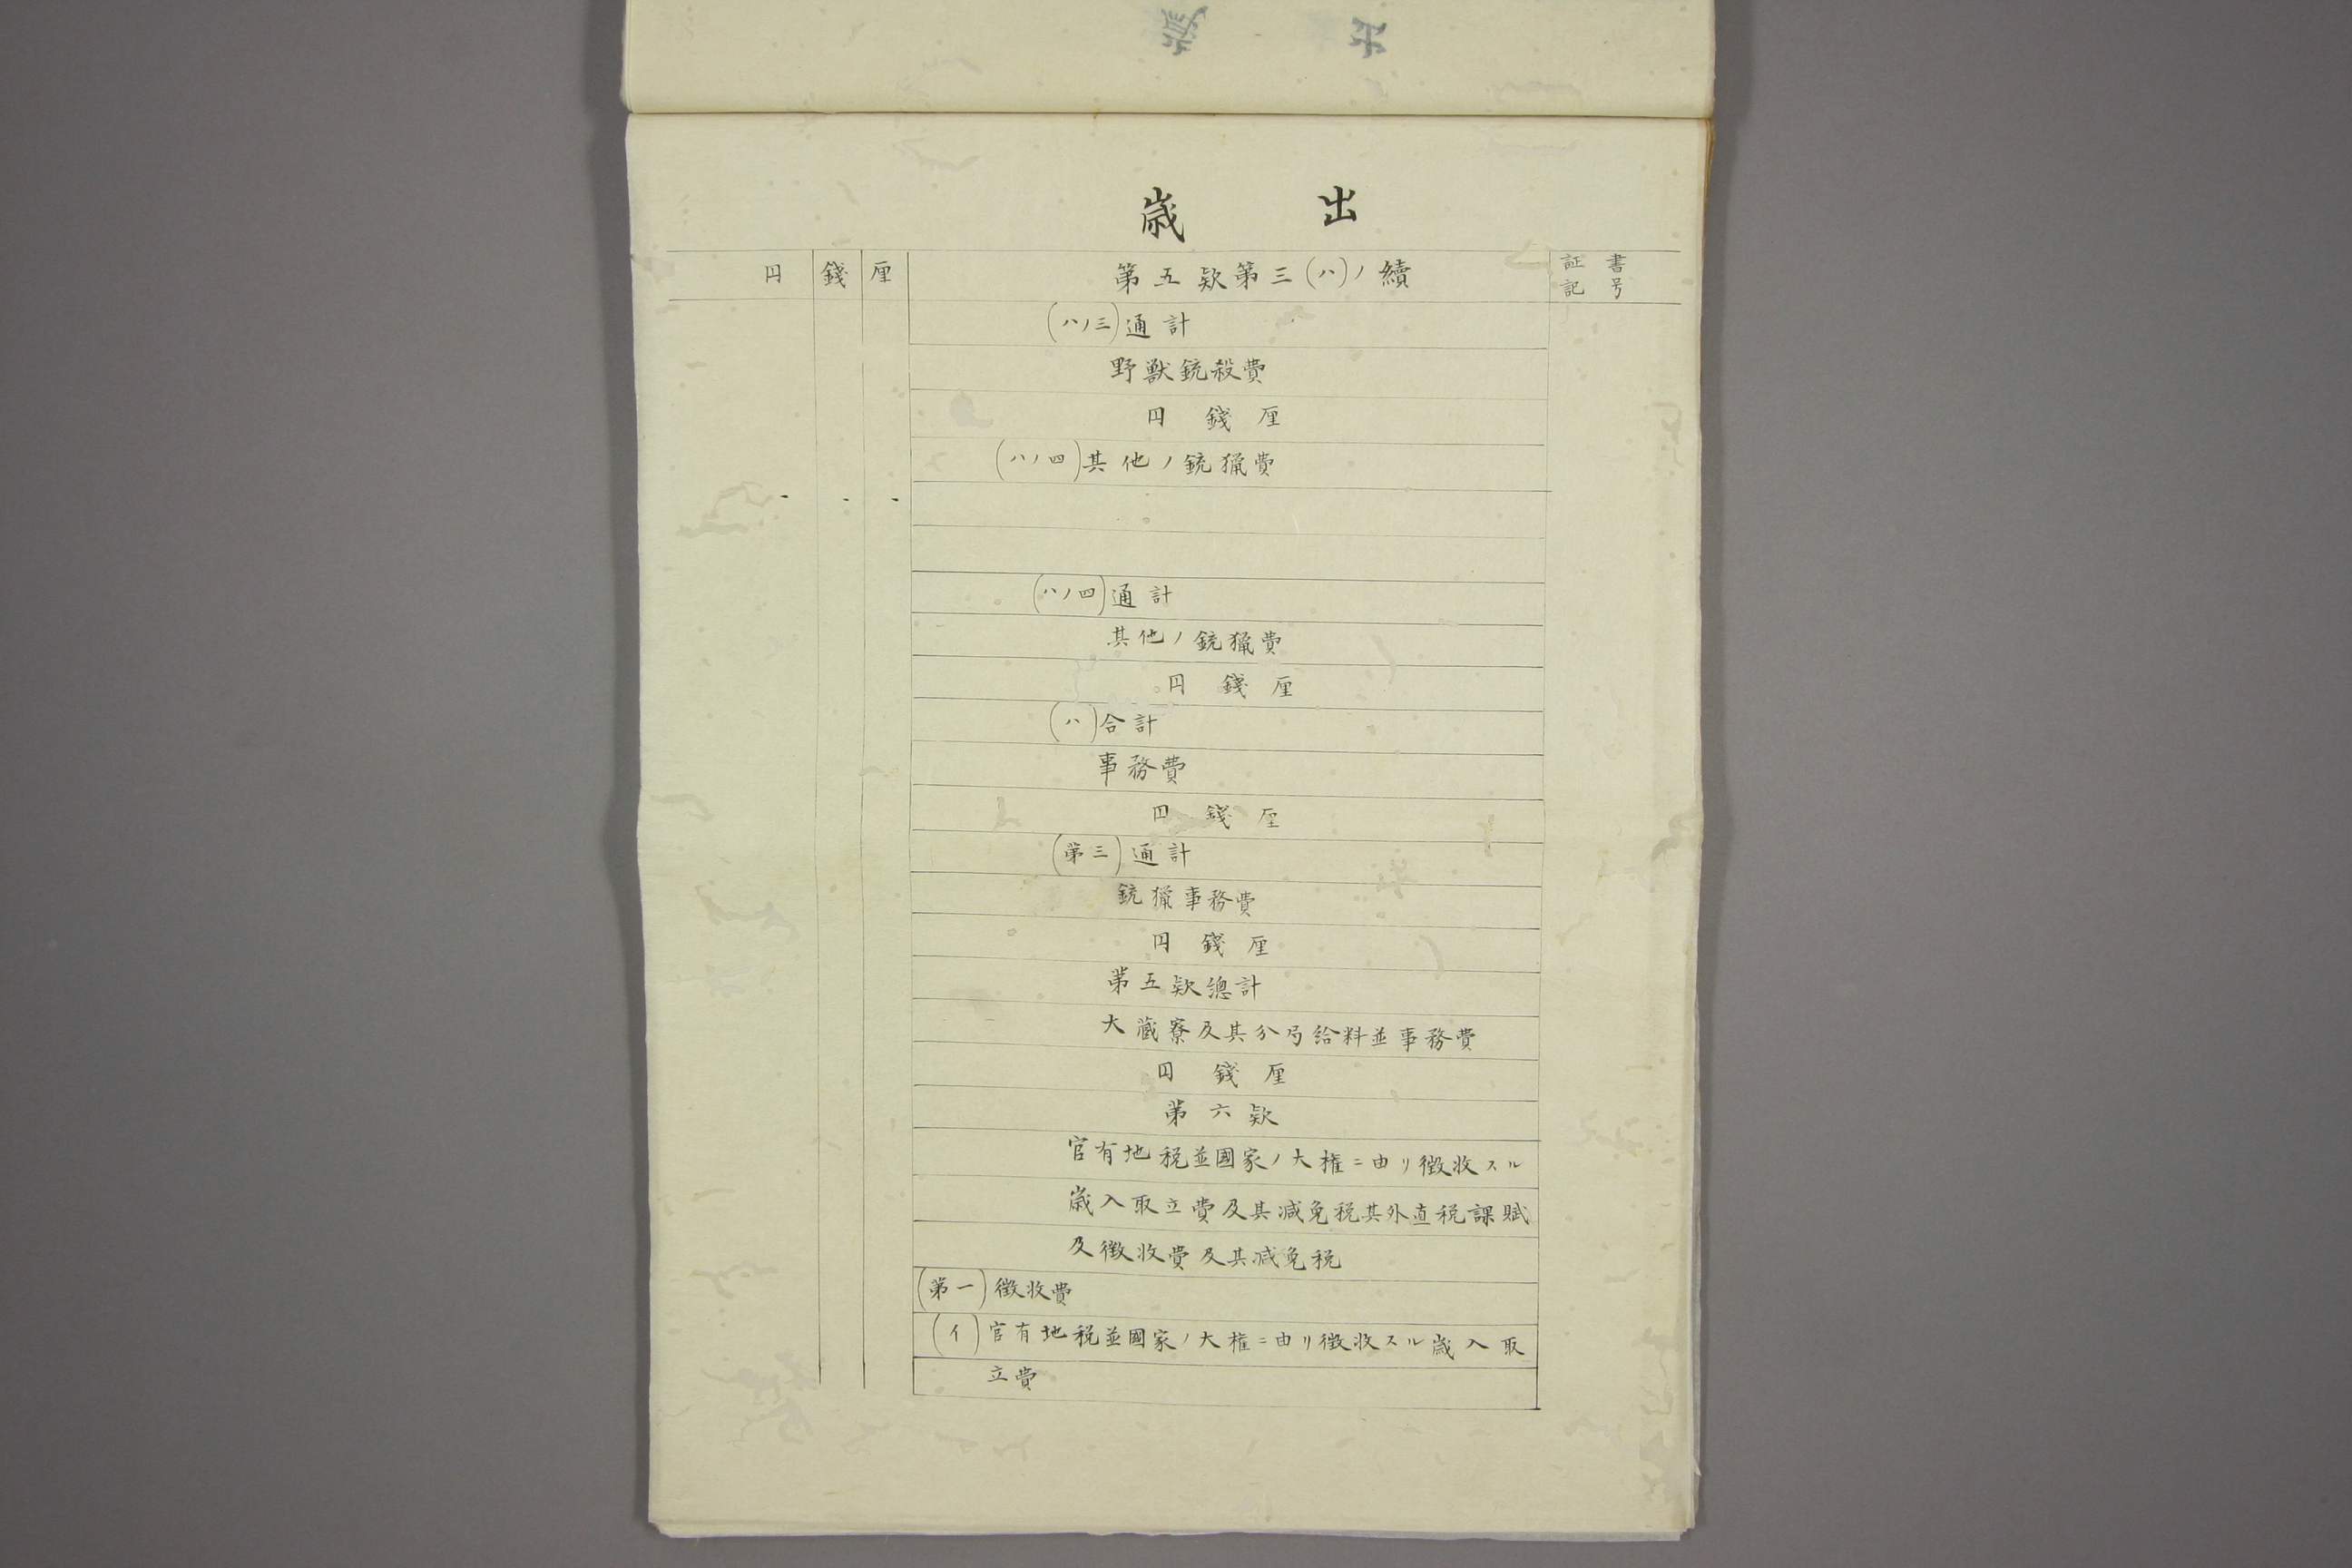 歳出
円 錢 厘 第五欵第三(ハ)ノ續 証書
記号
(ハノ三)通計
野獸銃殺費
円 錢 厘
(ハノ四)其他ノ銃獵費
(ハノ四)通計
其他ノ銃獵費
円 錢 厘
(ハ)合計
事務費
円 錢 厘
(第三)通計
銃獵事務費
円 錢 厘
第五欵總計
大藏寮及其分局給料並事務費
円 錢 厘
第六欵
官有地税並國家ノ大権ニ由リ徴收スル
歳入取立費及其减免税其外直税課賦
及徴收費及其减免税
(第一)徴收費
(イ)官有地税並國家ノ大権ニ由リ徴收スル歳入取
立費